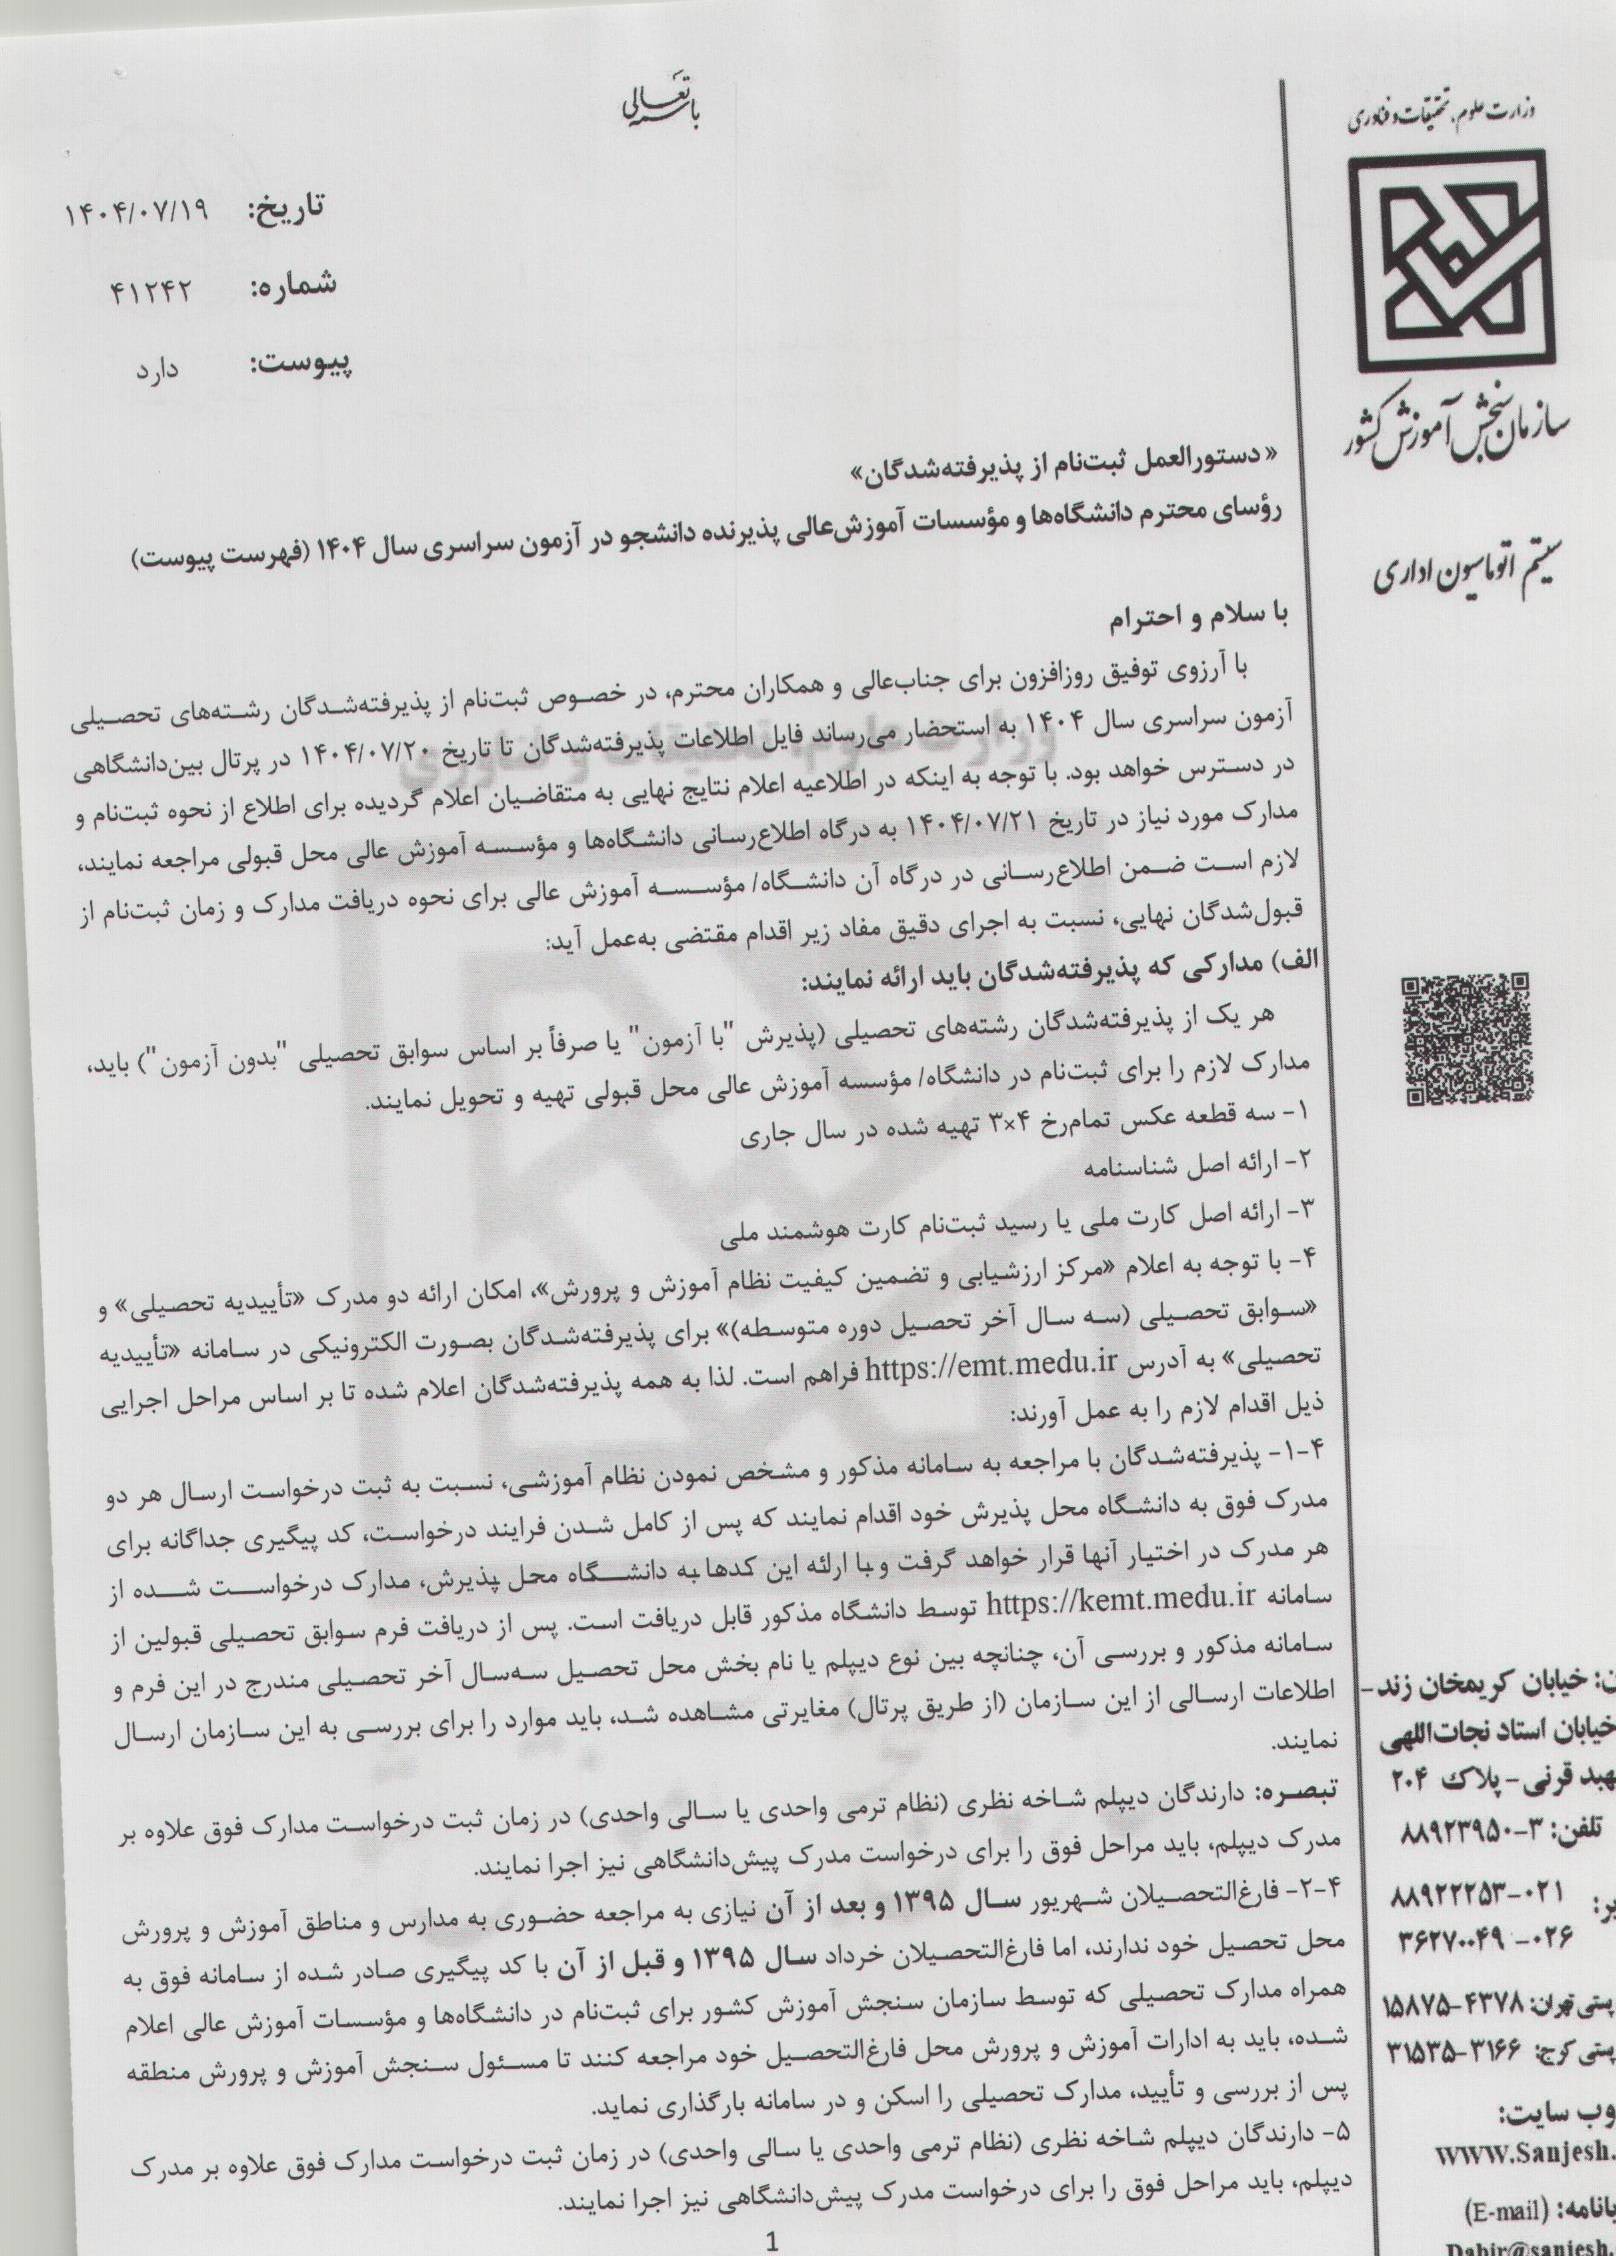 باسمه تعالی
وزارت علوم، تحقیقات و فناوری
سازمان سنجش آموزش کشور
سیستم اتوماسیون اداری
تاریخ: ۱۴۰۴/۰۷/۱۹
شماره: ۴۱۲۴۲
پیوست: دارد
«دستورالعمل ثبت‌نام از پذیرفته‌شدگان»
رؤسای محترم دانشگاه‌ها و مؤسسات آموزش‌عالی پذیرنده دانشجو در آزمون سراسری سال ۱۴۰۴ (فهرست پیوست)
با سلام و احترام
با آرزوی توفیق روزافزون برای جناب‌عالی و همکاران محترم، در خصوص ثبت‌نام از پذیرفته‌شدگان رشته‌های تحصیلی
آزمون سراسری سال ۱۴۰۴ به استحضار می‌رساند فایل اطلاعات پذیرفته‌شدگان تا تاریخ ۱۴۰۴/۰۷/۲۰ در پرتال بین‌دانشگاهی
در دسترس خواهد بود. با توجه به اینکه در اطلاعیه اعلام نتایج نهایی به متقاضیان اعلام گردیده برای اطلاع از نحوه ثبت‌نام و
مدارک مورد نیاز در تاریخ ۱۴۰۴/۰۷/۲۱ به درگاه اطلاع‌رسانی دانشگاه‌ها و مؤسسه آموزش عالی محل قبولی مراجعه نمایند،
لازم است ضمن اطلاع‌رسانی در درگاه آن دانشگاه/ مؤسسه آموزش عالی برای نحوه دریافت مدارک و زمان ثبت‌نام از
قبول‌شدگان نهایی، نسبت به اجرای دقیق مفاد زیر اقدام مقتضی به‌عمل آید:
الف) مدارکی که پذیرفته‌شدگان باید ارائه نمایند:
هر یک از پذیرفته‌شدگان رشته‌های تحصیلی (پذیرش "با آزمون" یا صرفاً بر اساس سوابق تحصیلی "بدون آزمون") باید،
مدارک لازم را برای ثبت‌نام در دانشگاه/ مؤسسه آموزش عالی محل قبولی تهیه و تحویل نمایند.
۱- سه قطعه عکس تمام‌رخ ۴×۳ تهیه شده در سال جاری
۲- ارائه اصل شناسنامه
۳- ارائه اصل کارت ملی یا رسید ثبت‌نام کارت هوشمند ملی
۴- با توجه به اعلام «مرکز ارزشیابی و تضمین کیفیت نظام آموزش و پرورش»، امکان ارائه دو مدرک «تأییدیه تحصیلی» و
«سوابق تحصیلی (سه سال آخر تحصیل دوره متوسطه)» برای پذیرفته‌شدگان بصورت الکترونیکی در سامانه «تأییدیه
تحصیلی» به آدرس https://emt.medu.ir فراهم است. لذا به همه پذیرفته‌شدگان اعلام شده تا بر اساس مراحل اجرایی
ذیل اقدام لازم را به عمل آورند:
۴-۱- پذیرفته‌شدگان با مراجعه به سامانه مذکور و مشخص نمودن نظام آموزشی، نسبت به ثبت درخواست ارسال هر دو
مدرک فوق به دانشگاه محل پذیرش خود اقدام نمایند که پس از کامل شدن فرایند درخواست، کد پیگیری جداگانه برای
هر مدرک در اختیار آنها قرار خواهد گرفت و با ارائه این کدها به دانشگاه محل پذیرش، مدارک درخواست شده از
سامانه https://kemt.medu.ir توسط دانشگاه مذکور قابل دریافت است. پس از دریافت فرم سوابق تحصیلی قبولین از
سامانه مذکور و بررسی آن، چنانچه بین نوع دیپلم یا نام بخش محل تحصیل سه‌سال آخر تحصیلی مندرج در این فرم و
اطلاعات ارسالی از این سازمان (از طریق پرتال) مغایرتی مشاهده شد، باید موارد را برای بررسی به این سازمان ارسال
نمایند.
تبصره: دارندگان دیپلم شاخه نظری (نظام ترمی واحدی یا سالی واحدی) در زمان ثبت درخواست مدارک فوق علاوه بر
مدرک دیپلم، باید مراحل فوق را برای درخواست مدرک پیش‌دانشگاهی نیز اجرا نمایند.
۴-۲- فارغ‌التحصیلان شهریور سال ۱۳۹۵ و بعد از آن نیازی به مراجعه حضوری به مدارس و مناطق آموزش و پرورش
محل تحصیل خود ندارند، اما فارغ‌التحصیلان خرداد سال ۱۳۹۵ و قبل از آن با کد پیگیری صادر شده از سامانه فوق به
همراه مدارک تحصیلی که توسط سازمان سنجش آموزش کشور برای ثبت‌نام در دانشگاه‌ها و مؤسسات آموزش عالی اعلام
شده، باید به ادارات آموزش و پرورش محل فارغ‌التحصیل خود مراجعه کنند تا مسئول سنجش آموزش و پرورش منطقه
پس از بررسی و تأیید، مدارک تحصیلی را اسکن و در سامانه بارگذاری نماید.
۵- دارندگان دیپلم شاخه نظری (نظام ترمی واحدی یا سالی واحدی) در زمان ثبت درخواست مدارک فوق علاوه بر مدرک
دیپلم، باید مراحل فوق را برای درخواست مدرک پیش‌دانشگاهی نیز اجرا نمایند.
1
خیابان کریمخان زند-
خیابان استاد نجات‌اللهی
قرنی - پلاک ۲۰۴
تلفن: ۳-۸۸۹۲۳۹۵۰
۰۲۱-۸۸۹۲۲۲۵۳
۰۲۶-۳۶۲۷۰۰۴۹
پستی تهران: ۴۳۷۸-۱۵۸۷۵
پستی کرج: ۳۱۶۶-۳۱۵۳۵
وب سایت:
WWW.Sanjesh.
(E-mail)
Dabir@sanjesh.